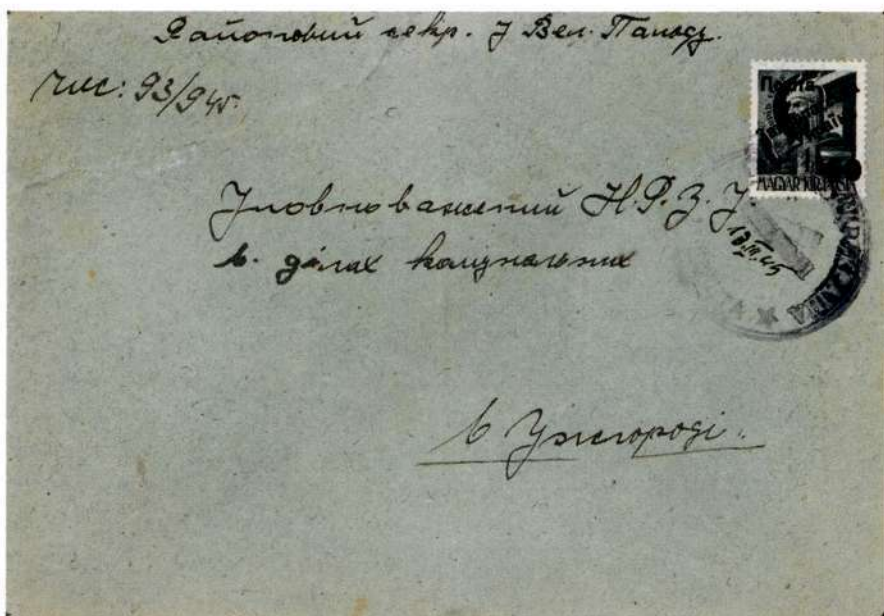 Районовий секр. у Вел. Паладу.
Чис: 93/945.
Пошта
MAGYAR KIR. POSTA
Уповноважений Н.Р.З.У.
в ділах комунальних
13.III.45
в Ужгороді.